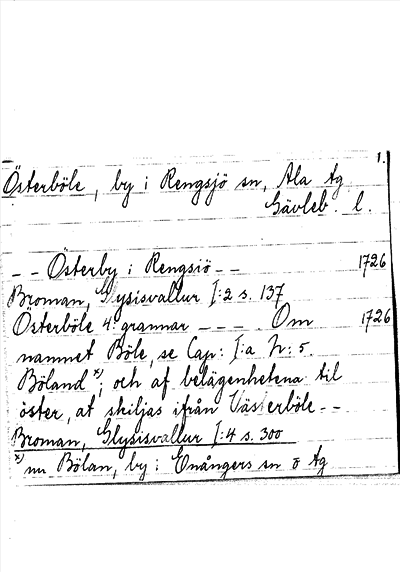 1.
Österböle, by i Rengsjö sn, Ala tg
Gävleb. l.
-- Österby i Rengsiö -- 1726
Broman, Glysisvallur I:2 s. 137
Österböle 4. grannar ---- Om 1726
namnet Böle, se Cap: I:a N: 5.
Böland x); och af belägenhetena til
öster, at skiljas ifrån Västerböle --
Broman, Glysisvallur I:4 s. 300
x) nu Bölan, by i Enångers sn ö tg